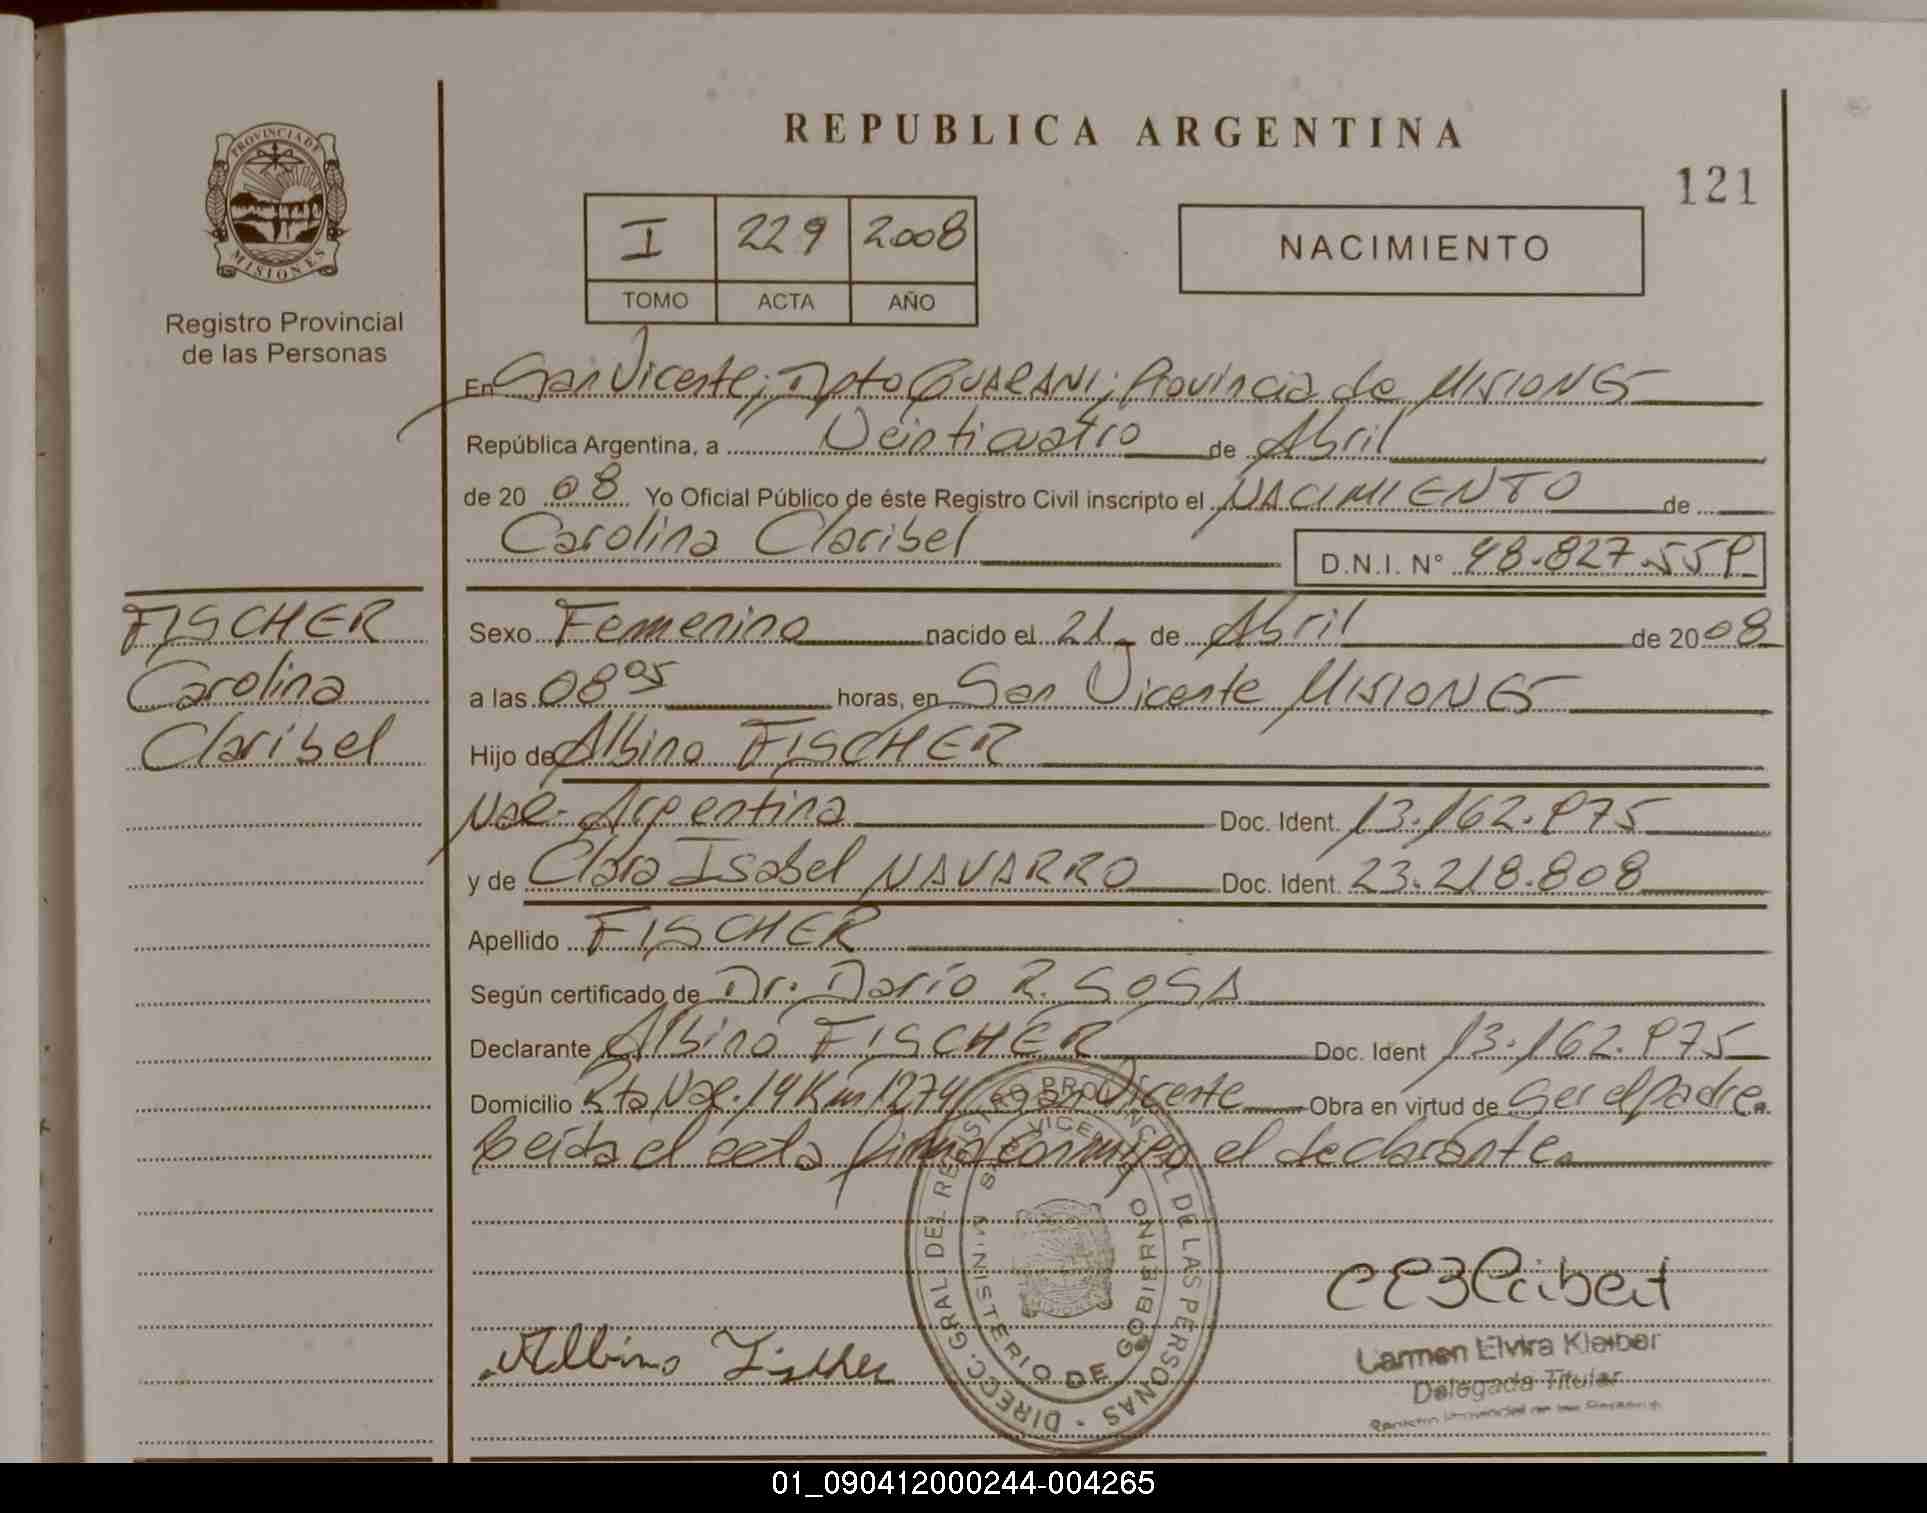 REPUBLICA ARGENTINA
121
PROVINCIA DE
MISIONES
Registro Provincial
de las Personas
I 229 2008
TOMO ACTA AÑO
NACIMIENTO
En San Vicente; Dpto GUARANI; Provincia de MISIONES
República Argentina, a Veinticuatro de Abril
de 20 08 Yo Oficial Público de éste Registro Civil inscripto el NACIMIENTO de
Carolina Claribel D.N.I. N° 48.827.559
FISCHER
Carolina
Claribel
Sexo Femenino nacido el 21 de Abril de 2008
a las 08 05 horas, en San Vicente MISIONES
Hijo de Albino FISCHER
Nac. Argentina Doc. Ident. 13.162.975
y de Clara Isabel NAVARRO Doc. Ident. 23.218.808
Apellido FISCHER
Según certificado de Dr. Darío R. SOSA
Declarante Albino FISCHER Doc. Ident 13.162.975
Domicilio Rta Nac. 14 Km 1274 San Vicente Obra en virtud de ser el padre.
Leída el acta firma conmigo el declarante.
DIRECC. GRAL. DEL REGISTRO PROVINCIAL DE LAS PERSONAS
MINISTERIO DE GOBIERNO
Albino Fischer
Carmen Elvira Kleiber
Delegada Titular
01_090412000244-004265